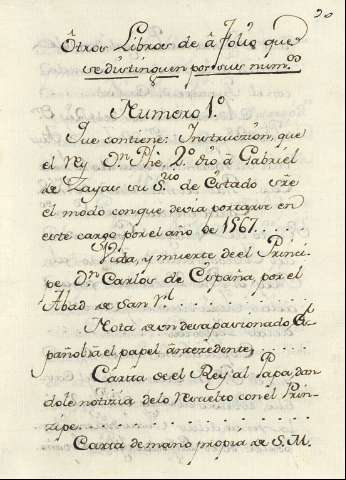 30
Otros Libros de â Folio que
se distinguen por sus núm.os
Numero 1.º
Que contiene: Instruczion, que
el Rey D.n Phe. 2.º dio â Gabriel
de Zayas su S.rio de Estado sre
el modo con que devia portarse en
este cargo por el año de 1567.......
Vida, y muerte de el Princi-
pe D.n Carlos de España, por el
Abad de San R.l ..............
Nota de un desapasionado Es-
pañol â el papel antecedente;
Carta de el Rey al Papa, dan-
dole notizia de lo resuelto con el Prin-
zipe..........................
Carta de mano propia de S.M.